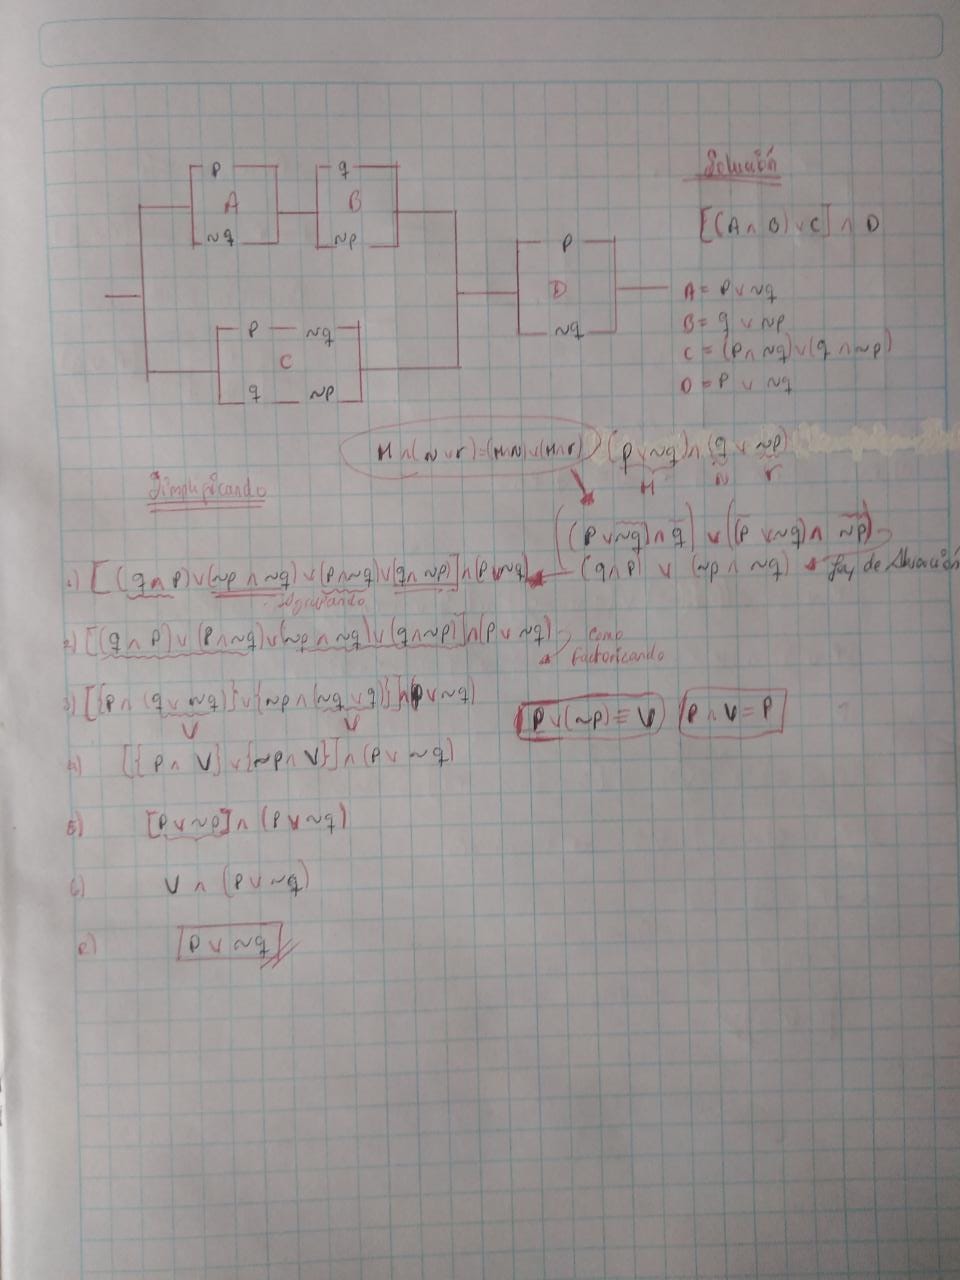 p
A
~q
q
B
~p
p ~q
C
q ~p
p
D
~q
Solución
[(A ∧ B) ∨ C] ∧ D
A = p ∨ ~q
B = q ∨ ~p
C = (p ∧ ~q) ∨ (q ∧ ~p)
D = p ∨ ~q
M ∧ (N ∨ r) = (M ∧ N) ∨ (M ∧ r) (p ∨ ~q) ∧ (q ∨ ~p)
M N r
Simplificando
((p ∨ ~q) ∧ q) ∨ ((p ∨ ~q) ∧ ~p)
(q ∧ p) ∨ (~p ∧ ~q) Ley de Absorción
1) [(q ∧ p) ∨ (~p ∧ ~q) ∨ (p ∧ ~q) ∨ (q ∧ ~p)] ∧ (p ∨ ~q)
Agrupando
2) [(q ∧ p) ∨ (p ∧ ~q) ∨ (~p ∧ ~q) ∨ (q ∧ ~p)] ∧ (p ∨ ~q)
como
factoricando
3) [{p ∧ (q ∨ ~q)} ∨ {~p ∧ (~q ∨ q)}] ∧ (p ∨ ~q)
V V
p ∨ (~p) ≡ V p ∧ V = p
4) [{p ∧ V} ∨ {~p ∧ V}] ∧ (p ∨ ~q)
5) [p ∨ ~p] ∧ (p ∨ ~q)
6) V ∧ (p ∨ ~q)
p ∨ ~q